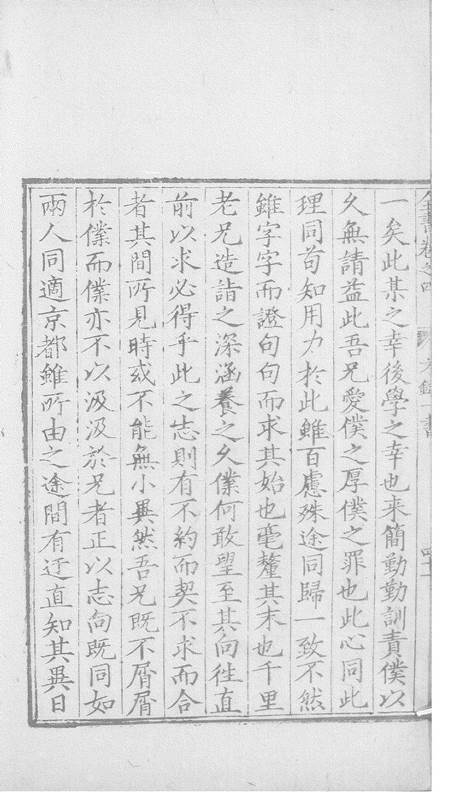 全書卷之四　文錄一　書
一矣此某之幸後學之幸也来簡動動訓責僕以
久無請益此吾兄愛僕之厚僕之罪也此心同此
理同苟知用力於此雖百慮殊途同歸一致不然
雖字字而證句句而求其始也毫釐其末也千里
老兄造詣之深涵養之久僕何敢望至其向徃直
前以求必得乎此之志則有不約而契不求而合
者其間所見時或不能無小異然吾兄既不屑屑
於僕而僕亦不以汲汲於兄者正以志向既同如
兩人同適京都雖所由之途間有迂直知其異日